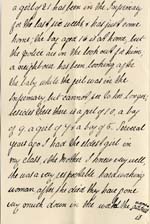 a girl of 21 has been in the Infirmary
for the last six weeks & has just come
home, the boy aged 18 is at home, but
the police are on the look out for him,
a neighbour has been looking after
the baby while the girl was in the
Infirmary, but cannot see to her longer,
besides these there is a girl of 10, a boy
of 9, a girl of 7 & a boy of 5. Several
years ago I had the eldest girl in
my class, the Mother I knew very well,
she was a very respectable hard working
woman, after she died they have gone
very much down in the world, the
is